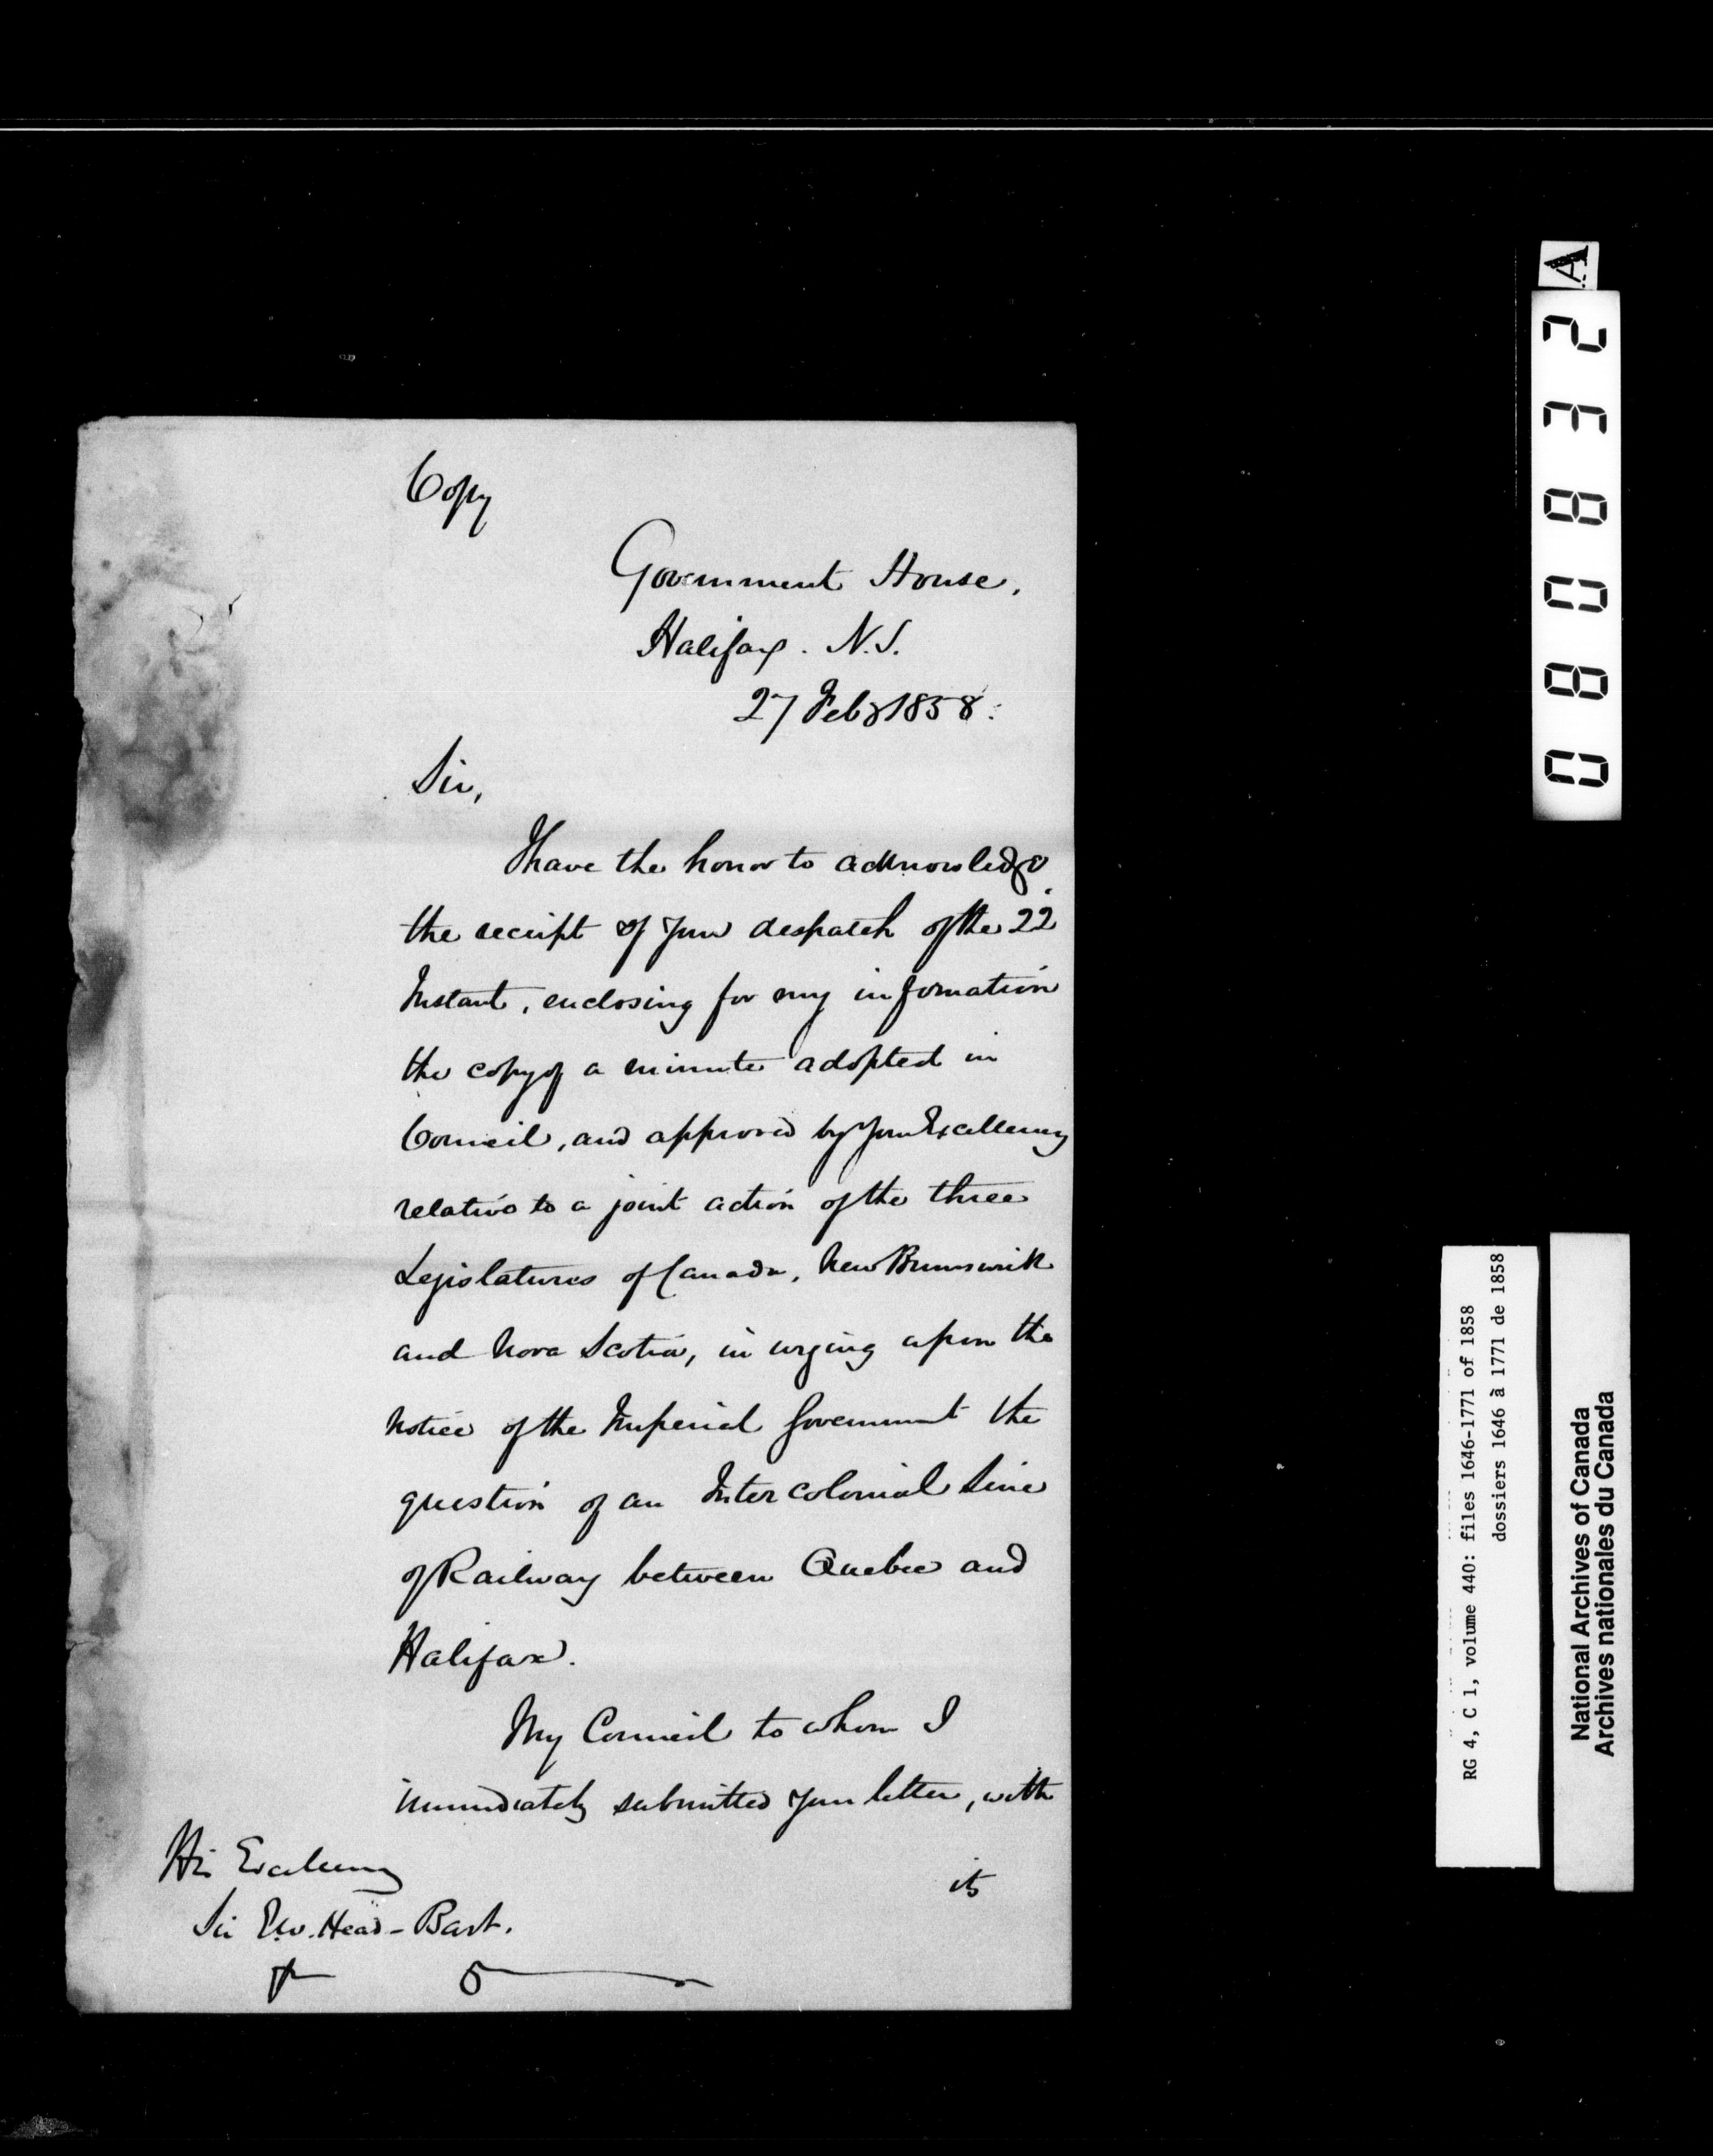 Copy
Government House,
Halifax. N.S.
27 Feby 1858.
Sir,
I have the honor to acknowledge
the receipt of your despatch of the 22
Instant, enclosing for my information
the copy of a minute adopted in
Council, and approved by Your Excellency
relative to a joint action of the three
Legislatures of Canada, New Brunswick
and Nova Scotia, in urging upon the
notice of the Imperial Government the
question of an Inter colonial Line
of Railway between Quebec and
Halifax.
My Council to whom I
immediately submitted your letter, with
its
His Excellency
Sir E.W. Head - Bart.
A
080832
RG 4, C 1, volume 440: files 1646-1771 of 1858
dossiers 1646 à 1771 de 1858
National Archives of Canada
Archives nationales du Canada